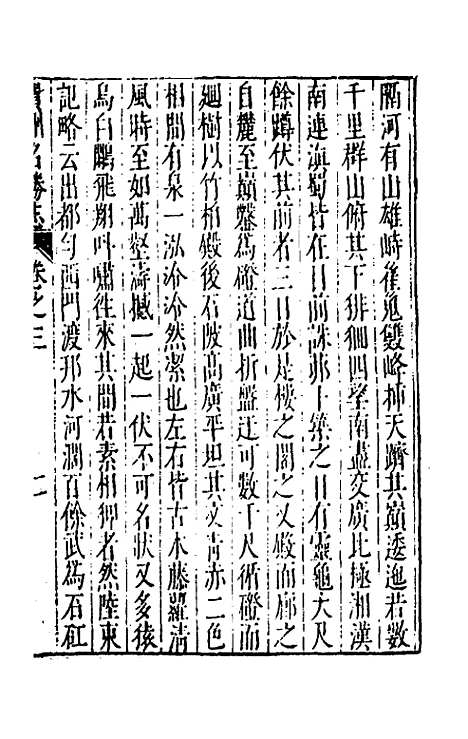 隔河有山雄峙崔嵬雙略柿天躋其巔逶迤若數
千里群山俯其下徘徊四望南盡交廣北極湘漢
南連滇蜀皆在目前誅茆卜築之日有靈龜大尺
餘蹲伏其前者三日於是棲之閣之又殿而廊之
自麓至巔鑿爲磴道曲折盤迂可數千尺循磴而
廻樹以竹柏殿後石陂高廣平坦其文青赤二色
相間有泉一泓泠泠然潔也左右皆古木藤蘿清
風時至如萬壑濤撼一起一伏不可名狀又多猿
鳥白鷳飛翔呌嘯徃來其間若素相狎者然陸東
記略云出都勻西門渡邢水河澗百餘武爲石矼
貴州名勝志 卷之三 二